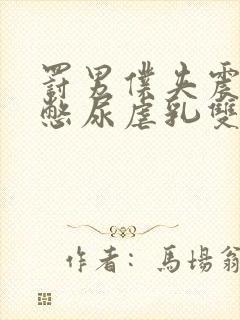 罰男僕失震
憋尿虐乳雙
作者：馬場翁